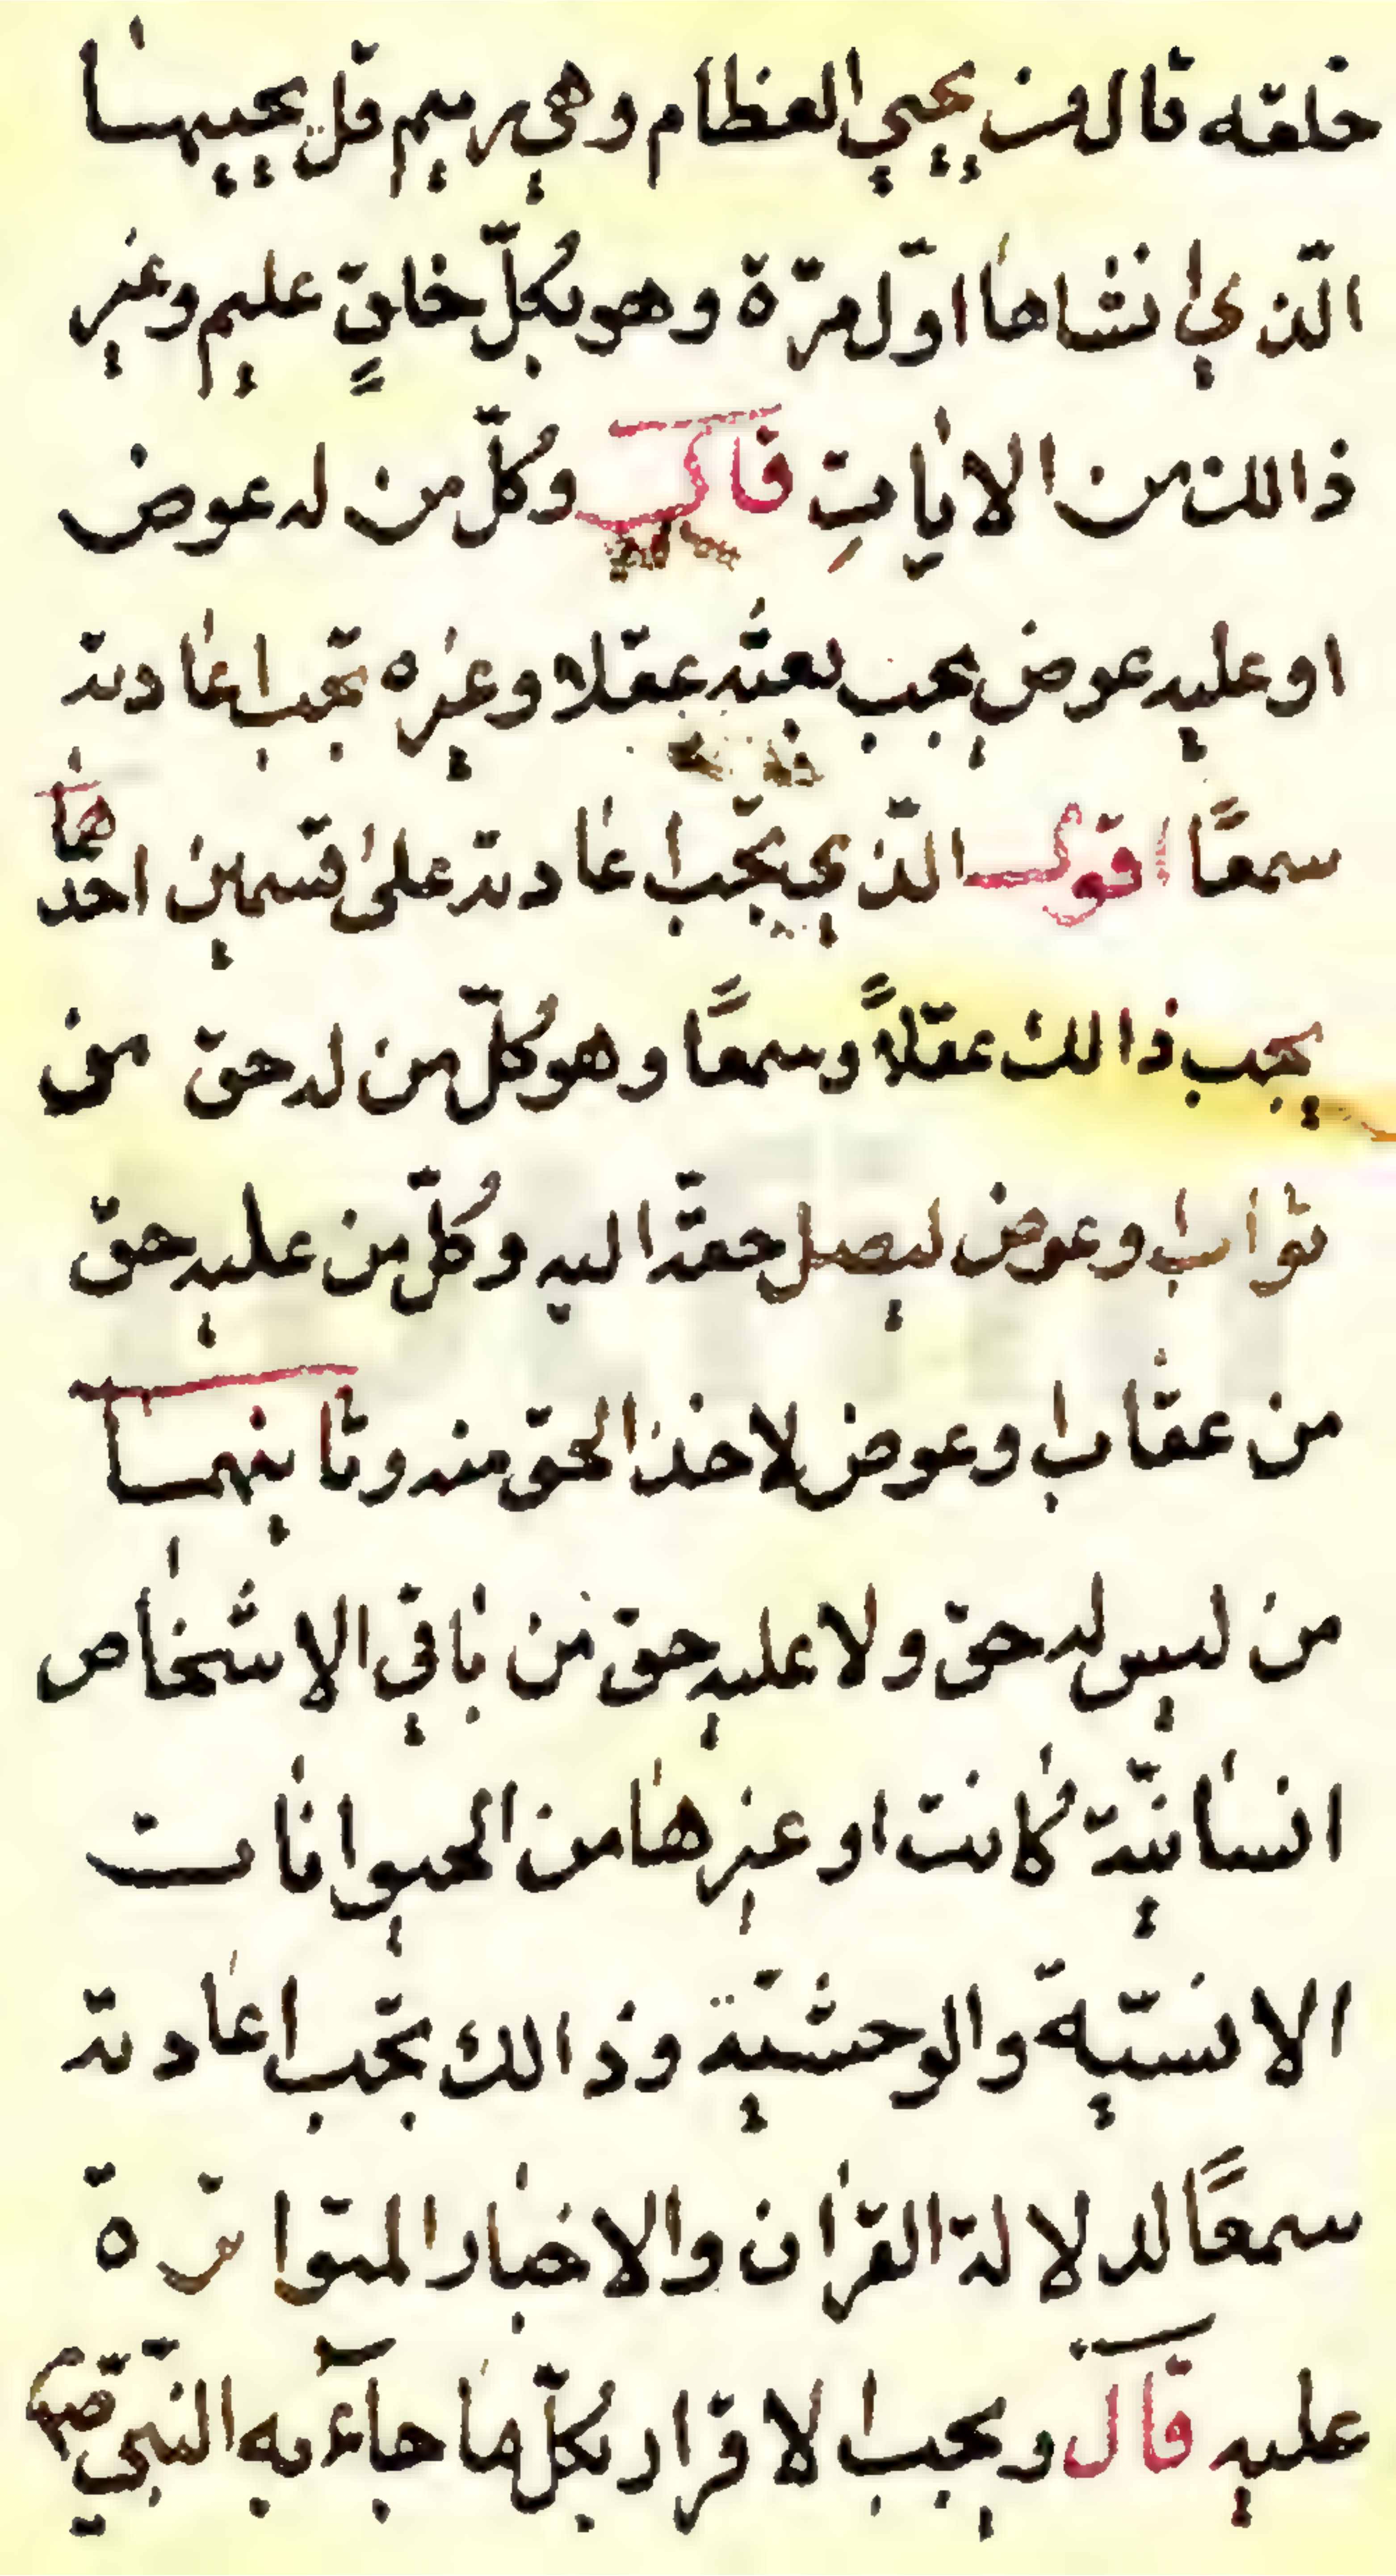 خلقه قال من يحيي العظام وهي رميم قل يحييها
الّذي انشاها اوّل مرّة وهو بكلّ خلقٍ عليم وغير
ذالك من الايات قال وكلّ من له عوض
او عليه عوض يجب بعثه عقلا وغيره تجب اعادته
سمعًا اقول الّذي يجب اعادته على قسمين احدهما
يجب ذالك عقلاً وسمعًا وهو كلّ من له حق من
ثواب وعوض ليصل حقّه اليه وكلّ من عليه حق
من عقاب وعوض لاخذ الحق منه وثانيهما
من ليس له حق ولا عليه حق من باقي الاشخاص
انسانيّة كانت او غيرها من الحيوانات
الانسيّة والوحشيّة وذالك تجب اعادته
سمعًا لدلالة القران والاخبار المتواترة
عليه قال ويجب الاقرار بكلّ ما جآء به النّبيّ صم